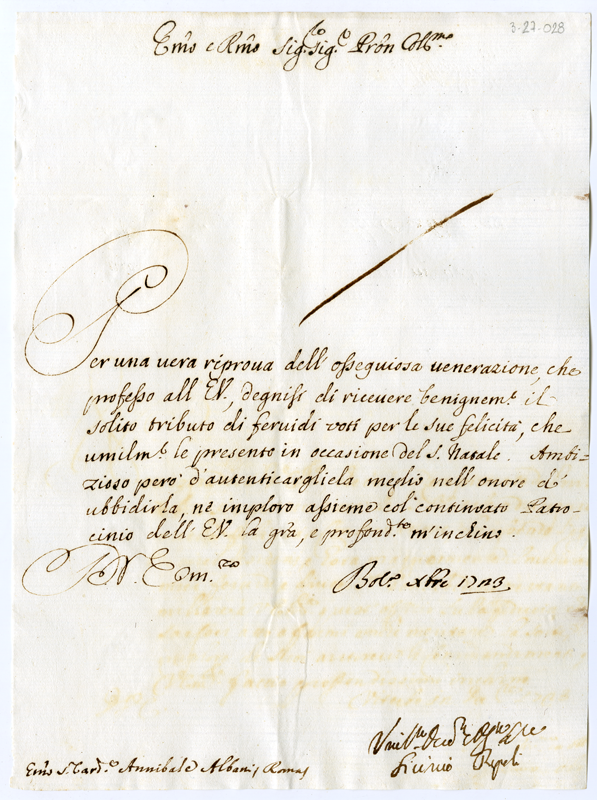 3-27-028
Em̃o e Rm̃o Sig.re Sig.e Pr̃on Col.mo
Per una vera riprova dell' ossequiosa venerazione, che
professo all' EV., degnisi di ricevere benignem.e il
solito tributo di fervidi voti per le sue felicità, che
umilm.e le presento in occasione del S. Natale. Ambi-
zioso però d'autenticargliela meglio nell' onore d'
ubbidirla, ne imploro assieme col continuato Patro-
cinio dell' EV. la gr̃a, e profond.te m'inchino.
Bol.a Xbre 1723
Em̃o S. Card.e Annibale Albani Roma
Sicinio Pepoli